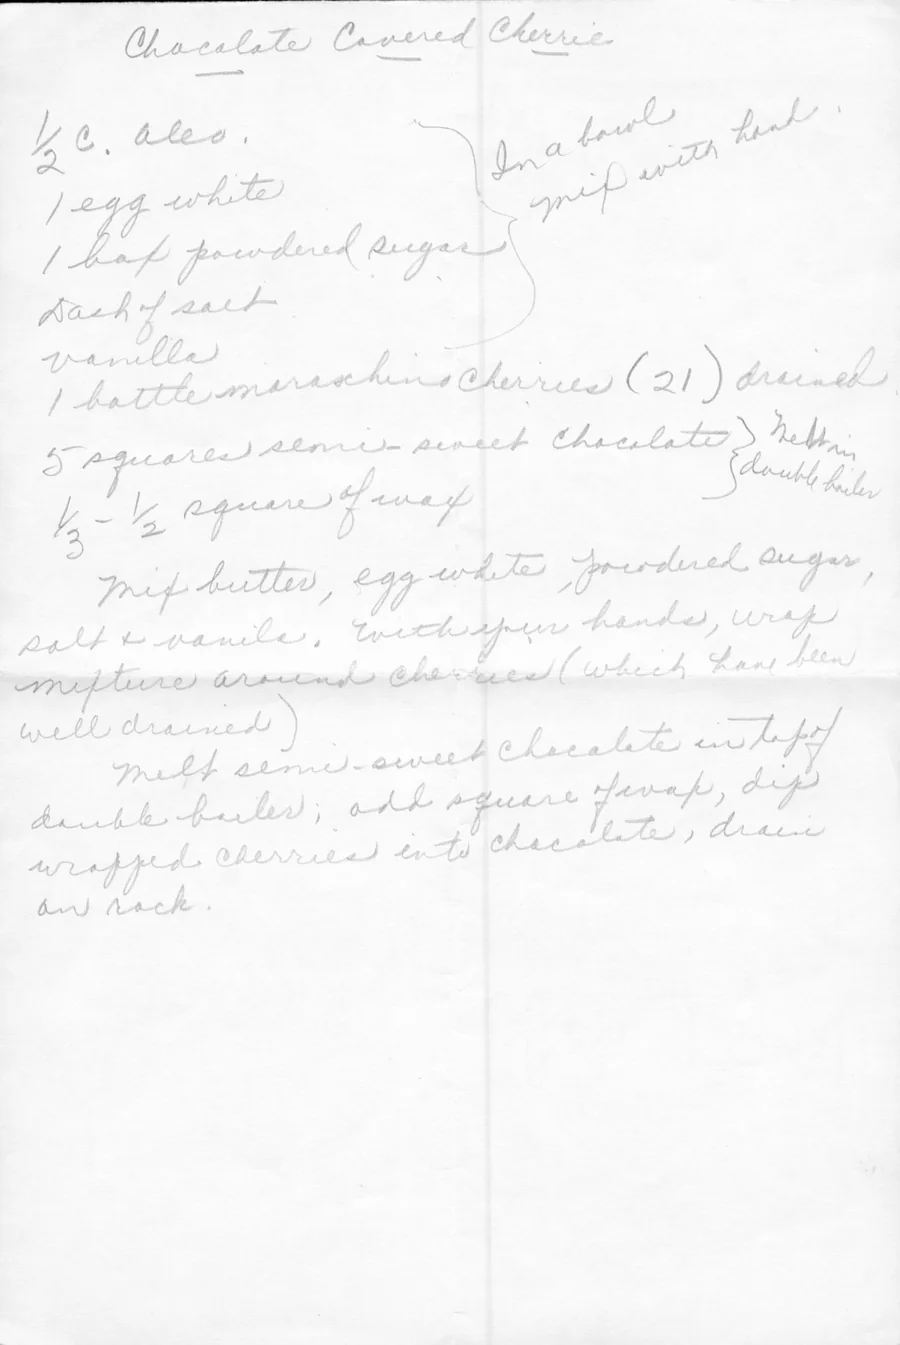 Chocolate Covered Cherrie
1/2 C. Oleo.
1 egg white
1 box powdered sugar
Dash of salt
vanilla
In a bowl
mix with hand.
1 bottle maraschino cherries (21) drained
5 squares semi-sweet chocolate
1/3 - 1/2 square of wax
Melt in
double boiler
Mix butter, egg white, powdered sugar,
salt & vanila. With your hands, wrap
mixture around cherries (which have been
well drained)
Melt semi-sweet chocolate in top of
double boiler; add square of wax, dip
wrapped cherries into chocolate, drain
on rack.